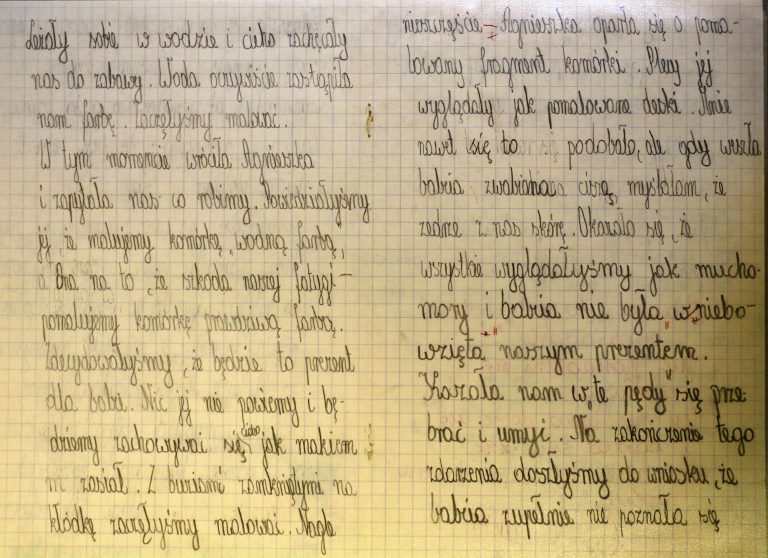 Leżały sobie w wodzie i cicho zachęcały
nas do zabawy. Woda oczywiście zastąpiła
nam farbę. Zaczęłyśmy malować.
W tym momencie wróciła Agnieszka
i zapytała nas co robimy. Powiedziałyśmy
jej, że malujemy komórkę „wodną farbą",
a Ona na to, że szkoda naszej fatygi –
pomalujemy komórkę prawdziwą farbą.
Zdecydowałyśmy, że będzie to prezent
dla babci. Nic jej nie powiemy i bę-
dziemy zachowywać się cicho jak makiem
zasiał. Z buziami zamkniętymi na
kłódkę zaczęłyśmy malować. Nagle
nieszczęście – Agnieszka oparła się o poma-
lowany fragment komórki. Plecy jej
wyglądały jak pomalowane deski. Mnie
nawet się to podobało, ale gdy wyszła
babcia zwabiona ciszą, myślałam, że
zedrze z nas skórę. Okazało się, że
wszystkie wyglądałyśmy jak mucho-
mory i babcia nie była „wniebo-
wzięta" naszym prezentem.
Kazała nam w „te pędy" się prze-
brać i umyć. Na zakończenie tego
zdarzenia doszłyśmy do wniosku, że
babcia zupełnie nie poznała się